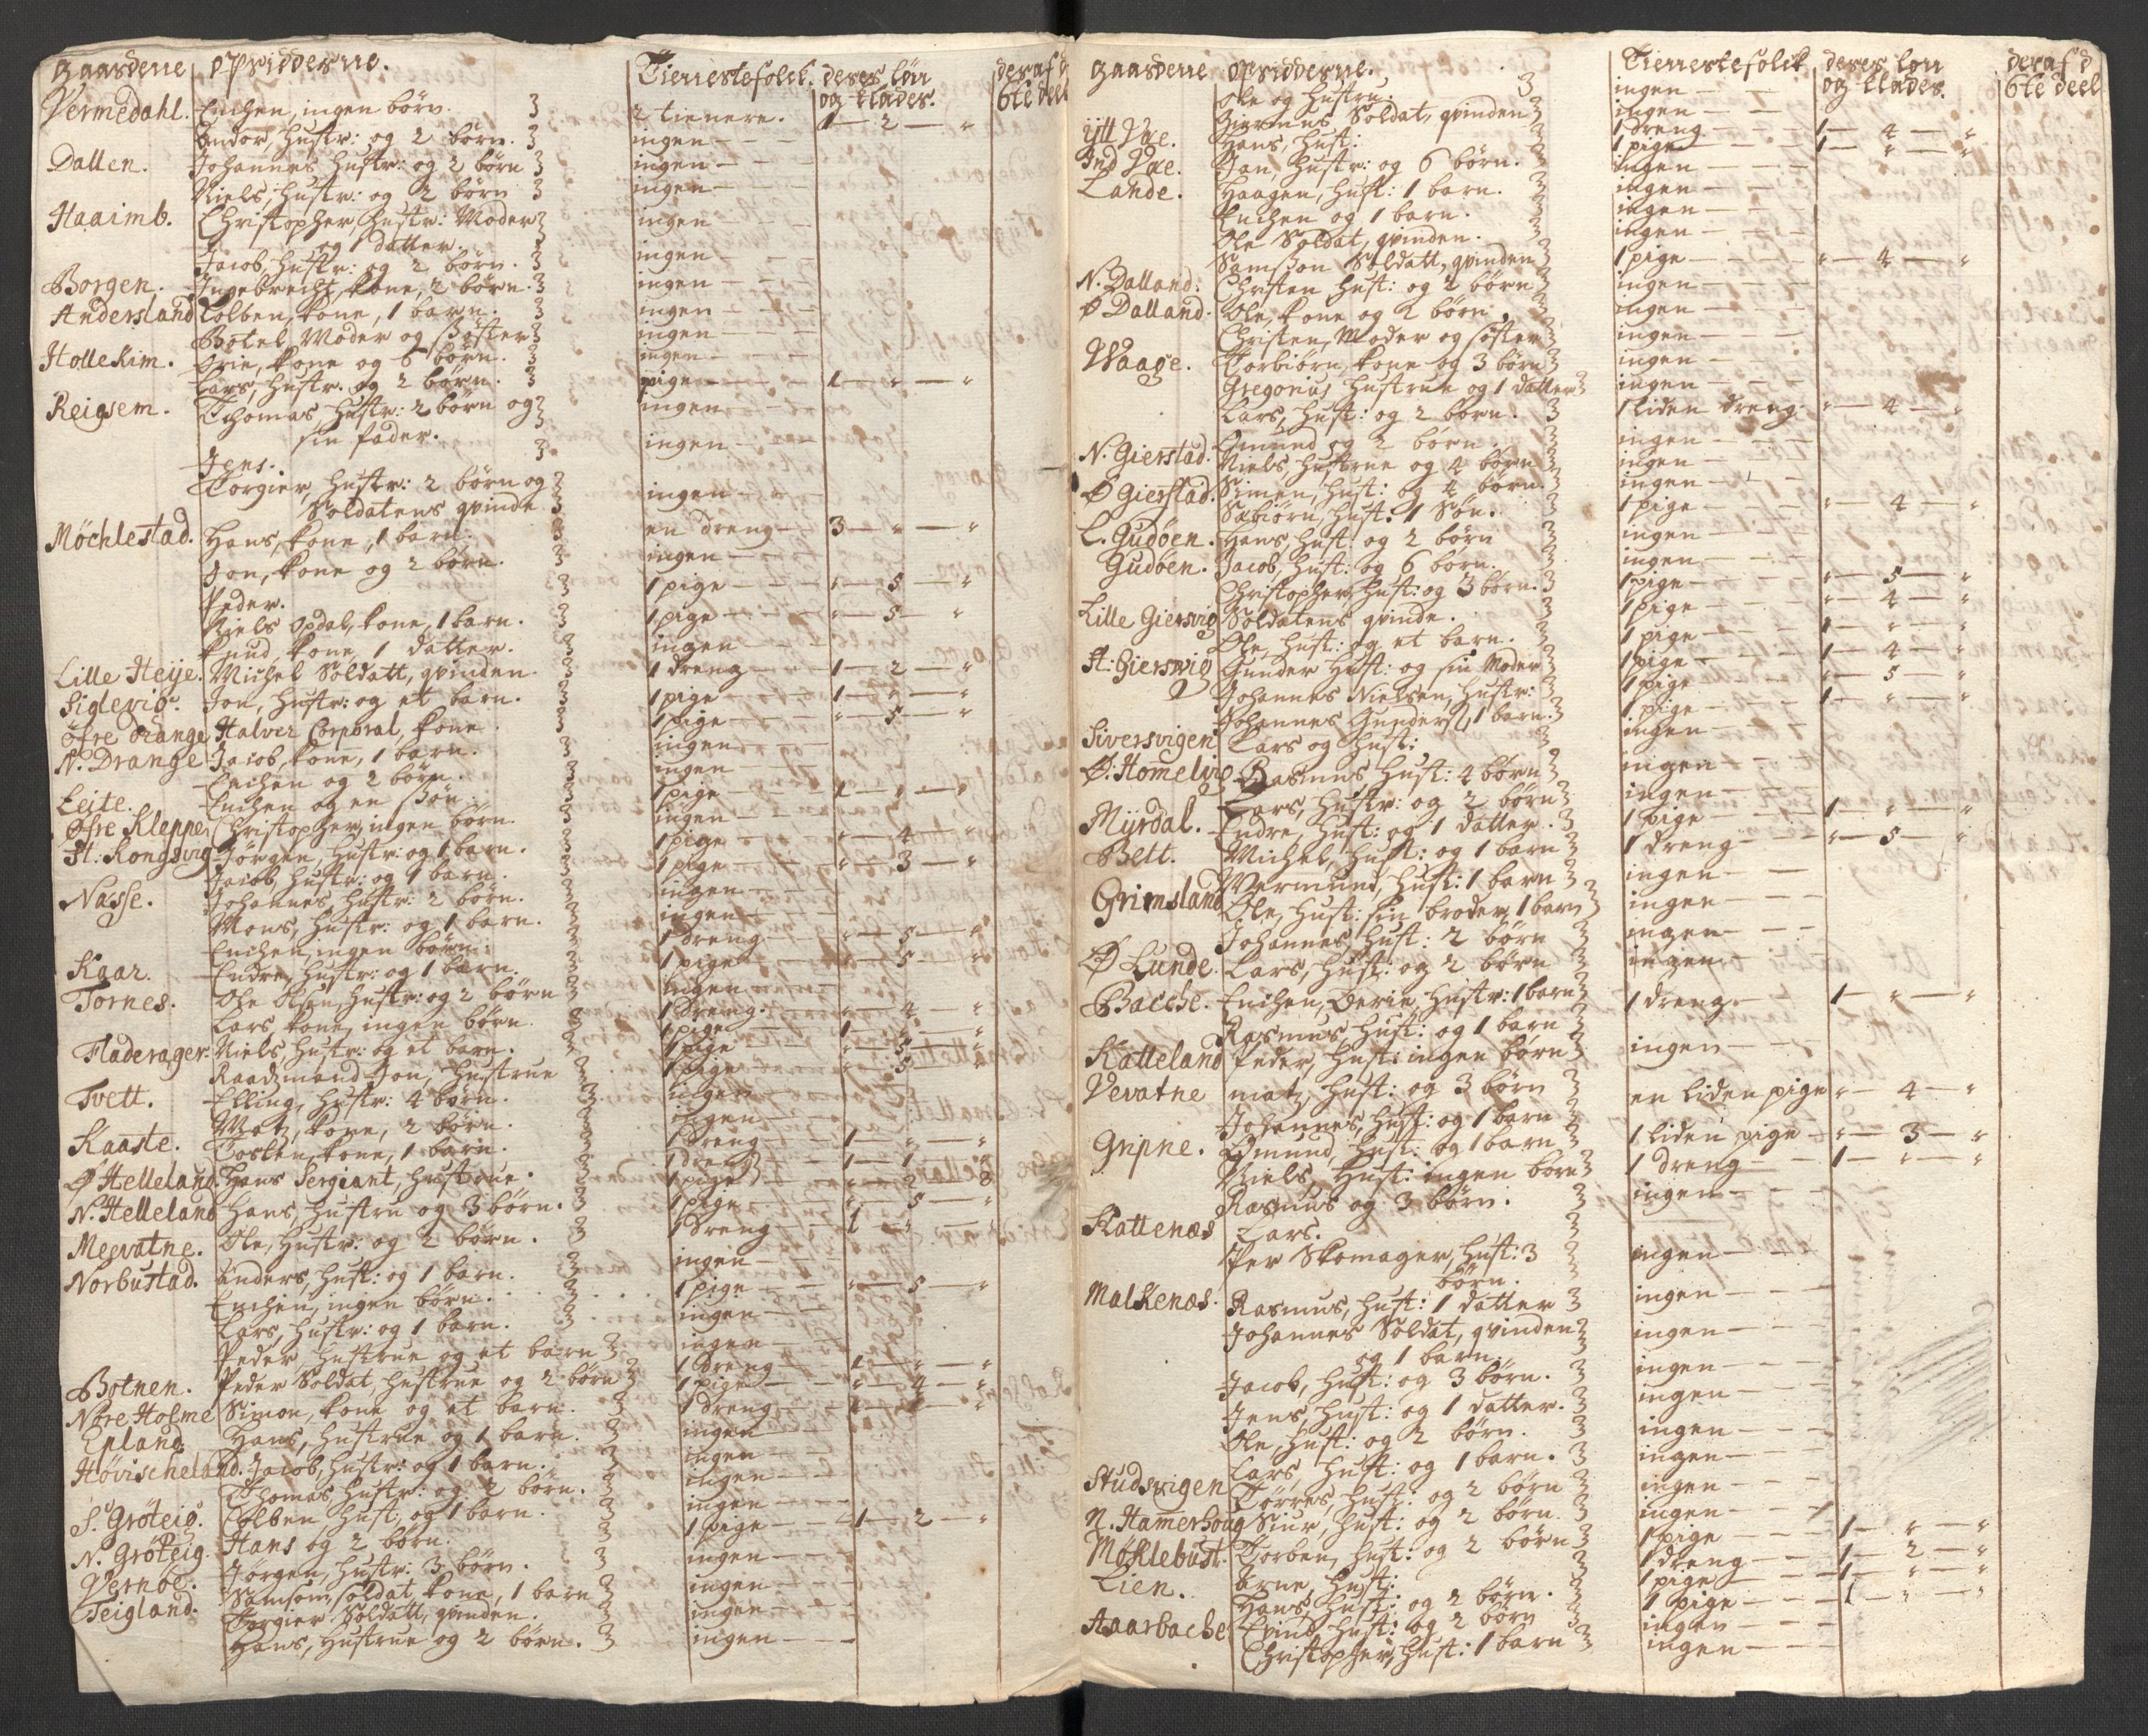 Gaarderne opsidderne. Tienestefolck. deres løn og klæder. deraf d 6te deel
Vermedahl. Enchen, ingen børn. 3 2 tienere. 1 — 2 — "
Andor, hustr: og 2 børn. 3 ingen
Dallen. Johannes hustr: og 2 børn 3 ingen
Niels, hustr: og 2 børn 3 ingen
Haaimb. Christopher, hustr: Moder 3 ingen
og 1 datter.
Jacob, hustr: og 2 børn. 3 ingen
Borgen. Ingebrecht, kone, 2 børn. 3 ingen
Andersland Colben, kone, 1 barn. 3 ingen
Botel, Moder og søster 3 ingen
Hollekim. Brie, kone og 6 børn. 3 ingen
Lars, hustr. og 2 børn. 3 pige 1 — " — "
Reigsem. Thomas, hustr: 2 børn og 3 ingen
sin fader.
Jens. 3 ingen
Torgier, hustr: 2 børn og 3
Soldatens qvinde 3 ingen
Möchlestad. Hans, kone, 1 barn. 3 en dreng 3 — " — "
Jon, kone og 2 børn. 3 ingen
Peder. 3 1 pige " — 5 — "
Niels Opdal, kone, 1 barn. 3 1 pige " — 5 — "
Knud, kone, 1 datter. 3 ingen
Lille Heije. Michel Soldatt, qvinden 3 1 dreng 1 — 2 — "
Siglevig. Jon, hustr: og et barn. 3 1 pige 1 — " — "
Öfre Drange Halver Corporal, kone. 3 1 pige " — 5 — "
N. Drange Jacob, kone, 1 barn. 3 ingen
Enchen og 2 børn. 3 ingen
Leite. Enchen og en Søn. 3 1 pige 1 — " — "
Øfre Klepper Christopher, ingen børn. 3 ingen
St: Rongsvig Jørgen, hustr: og 1 barn. 3 1 pige " — 4 — "
Jacob, hustr: og 1 barn. 3 1 pige " — 3 — "
Nasse. Johannes, hustr: 2 børn. 3 ingen
Mons, hustr: og 1 barn. 3 ingen
Enchen, ingen børn. 3 1 dreng " — 5 — "
Kaar. Endre, hustr: og 1 barn. 3 1 pige " — 5 — "
Tornes. Ole Olsen, hustr: og 2 børn 3 ingen
Lars, kone, ingen børn. 3 1 dreng. " — 4 — "
Fladerager. Niels, hustr: og et barn. 3 1 pige 1 — " — "
Raadzmand Jon, hustrue 3 1 pige " — 5 — "
Tvett. Elling, hustr: 4 børn. 3 1 pige " — 5 — "
Matz, kone, 2 børn. 3 ingen
Kaaste. Tosten, kone, 1 barn. 3 ingen
Ø Helleland. Hans Sergiant, hustrue. 3 1 dreng 1 — " — "
N. Helleland Hans, hustru og 3 børn. 3 1 dreng 1 — 1 — 8
Mesvatne. Ole, hustr: og 2 børn. 3 1 pige " — 2 — 8
Norbustad. Anders, hust: og 1 barn. 3 1 pige " — 5 — "
Enchen, ingen børn. 3 1 dreng 1 — " — "
Lars, hustr: og 1 barn. 3 ingen
Peder, hustrue og et barn 3 1 pige " — 5 — "
Botnen. Peder Soldat, hustrue og 2 børn 3 ingen
Nøre Holme Simon, kone og et barn. 3 ingen
Epland. Hans, hustrue og 1 barn. 3 1 dreng 1 — " — "
Høvischeland. Jacob, hustr: og 1 barn. 3 1 pige " — 4 — "
Thomas, hustr: og 2 børn. 3 1 dreng
S. Gröteig. Colben hust, og 1 barn. 3 ingen
N. Gröteig. Hans og 2 børn. 3 ingen
Vernöe. Jørgen, hustr: 3 børn. 3 ingen
Teigland. Samson, soldat, kone, 1 barn 3 1 pige 1 — 2 — "
Torgier Soldatt, qvinden. 3 ingen
Hans, hustrue og 2 børn. 3 ingen
Gaarderne opsidderne. Tienestefolck deres løn og klæder. deraf d 6te deel
Ole og hustru. 3 ingen
Soldat, qvinden 3 ingen
ijtt Vae. Hans, hust: 3 1 dreng 1 — 4 — "
Ind Vae. Jan, hustr: og 6 børn. 3 1 pige 1 — " — "
Lande. Haagen, hust: 1 barn. 3 ingen
Enchen og 1 barn. 3 ingen
Ole Soldat, qvinden. 3 ingen
Samson Soldatt, qvinden 3 1 pige " — 4 — "
N. Dalland. Christen hust: og 2 børn 3 ingen
Ø Dalland. Ole, kone og 2 børn. 3 ingen
Christen, Moder og søster 3 ingen
Waage. Torbiørn, kone og 3 børn 3 ingen
Gregorius, hustrue og 1 datter 3 ingen
Lars, hust: og 2 børn. 3 1 liden dreng " — 4 — "
N. Gierstad. Amund og 2 børn. 3 ingen
Niels, hustrue og 4 børn 3 ingen
Ø Gierstad. Simen, hust: og 4 børn. 3 ingen
Sæbiørn, hust: 1 Søn. 3 1 pige " — 4 — "
L. Gudøen. Hans, hust: og 2 børn 3 ingen
Gudøen. Jacob, hust: og 6 børn. 3 ingen
Christopher, hust: og 3 børn. 3 1 pige " — 5 — "
Lille Giersvig Soldatens qvinde. 3 1 pige " — 4 — "
Ole, hust: og et barn. 3 1 pige 1 — " — "
St: Gierswig Gunder hust: og sin Moder 3 1 pige 1 — 4 — "
Johannes Nielsen, hustr: 3 1 pige " — 5 — "
Johannes Gunders, 1 barn. 3 1 pige 1 — " — "
Siversvigen Lars og hust: 3 ingen
Ø: Homelvig Rasmus hust: 4 børn 3 ingen
Lars, hustr: og 2 børn 3 ingen
Mijrdal. Endre, hust: og 1 datter. 3 1 pige 1 — " — "
Bett. Michel, hust: og 1 barn 3 1 dreng " — 5 — "
Wermund, hust: 1 barn 3 ingen
Grimsland Ole, hust: sin broder, 1 barn 3 ingen
Johannes, hust: 2 børn 3 ingen
Ø Lunde. Lars, hust: og 2 børn 3 ingen
Bacche. Enchen, Berie, hustr: 1 barn 3 1 dreng 1 — " — "
Rasmus, hust: og 1 barn 3
Katteland Peder, hust: ingen børn 3 ingen
Vevatne matz, hust: og 3 børn 3 en liden pige " — 4 — "
Johannes, hust: og 1 barn 3
Gripne. Amund, hust: og 1 barn 3 1 liden pige " — 3 — "
Niels, hust: ingen børn 3 1 dreng 1 — " — "
Rasmus og 3 børn. 3 ingen
Skattenæs Lars. 3
Per Skomager, hust: 3 3 ingen
børn.
Malkenæs. Rasmus, hust: 1 datter 3 ingen
Johannes Soldat, qvinden 3 ingen
og 1 barn.
Jacob, hust: og 3 børn. 3 ingen
Jens, hust: og 1 datter. 3 ingen
Ole, hust: og 2 børn. 3 ingen
Lars, hust: og 1 barn. 3 ingen
Studsvigen Törres, hust: og 2 børn 3 ingen
N. Hamerhoug Siur, hust: og 2 børn. 3 ingen
Møklebust. Torben, hust: og 2 børn 3 1 pige 1 — " — "
Lien. Arne, hust: 3 1 dreng 1 — 2 — "
Hans, hust: og 2 børn. 3 1 pige 1 — " — "
Aaarbache Evind, hust: og 2 børn 3 1 pige 1 — " — "
Christopher, hust: 1 barn 3 ingen
ingen